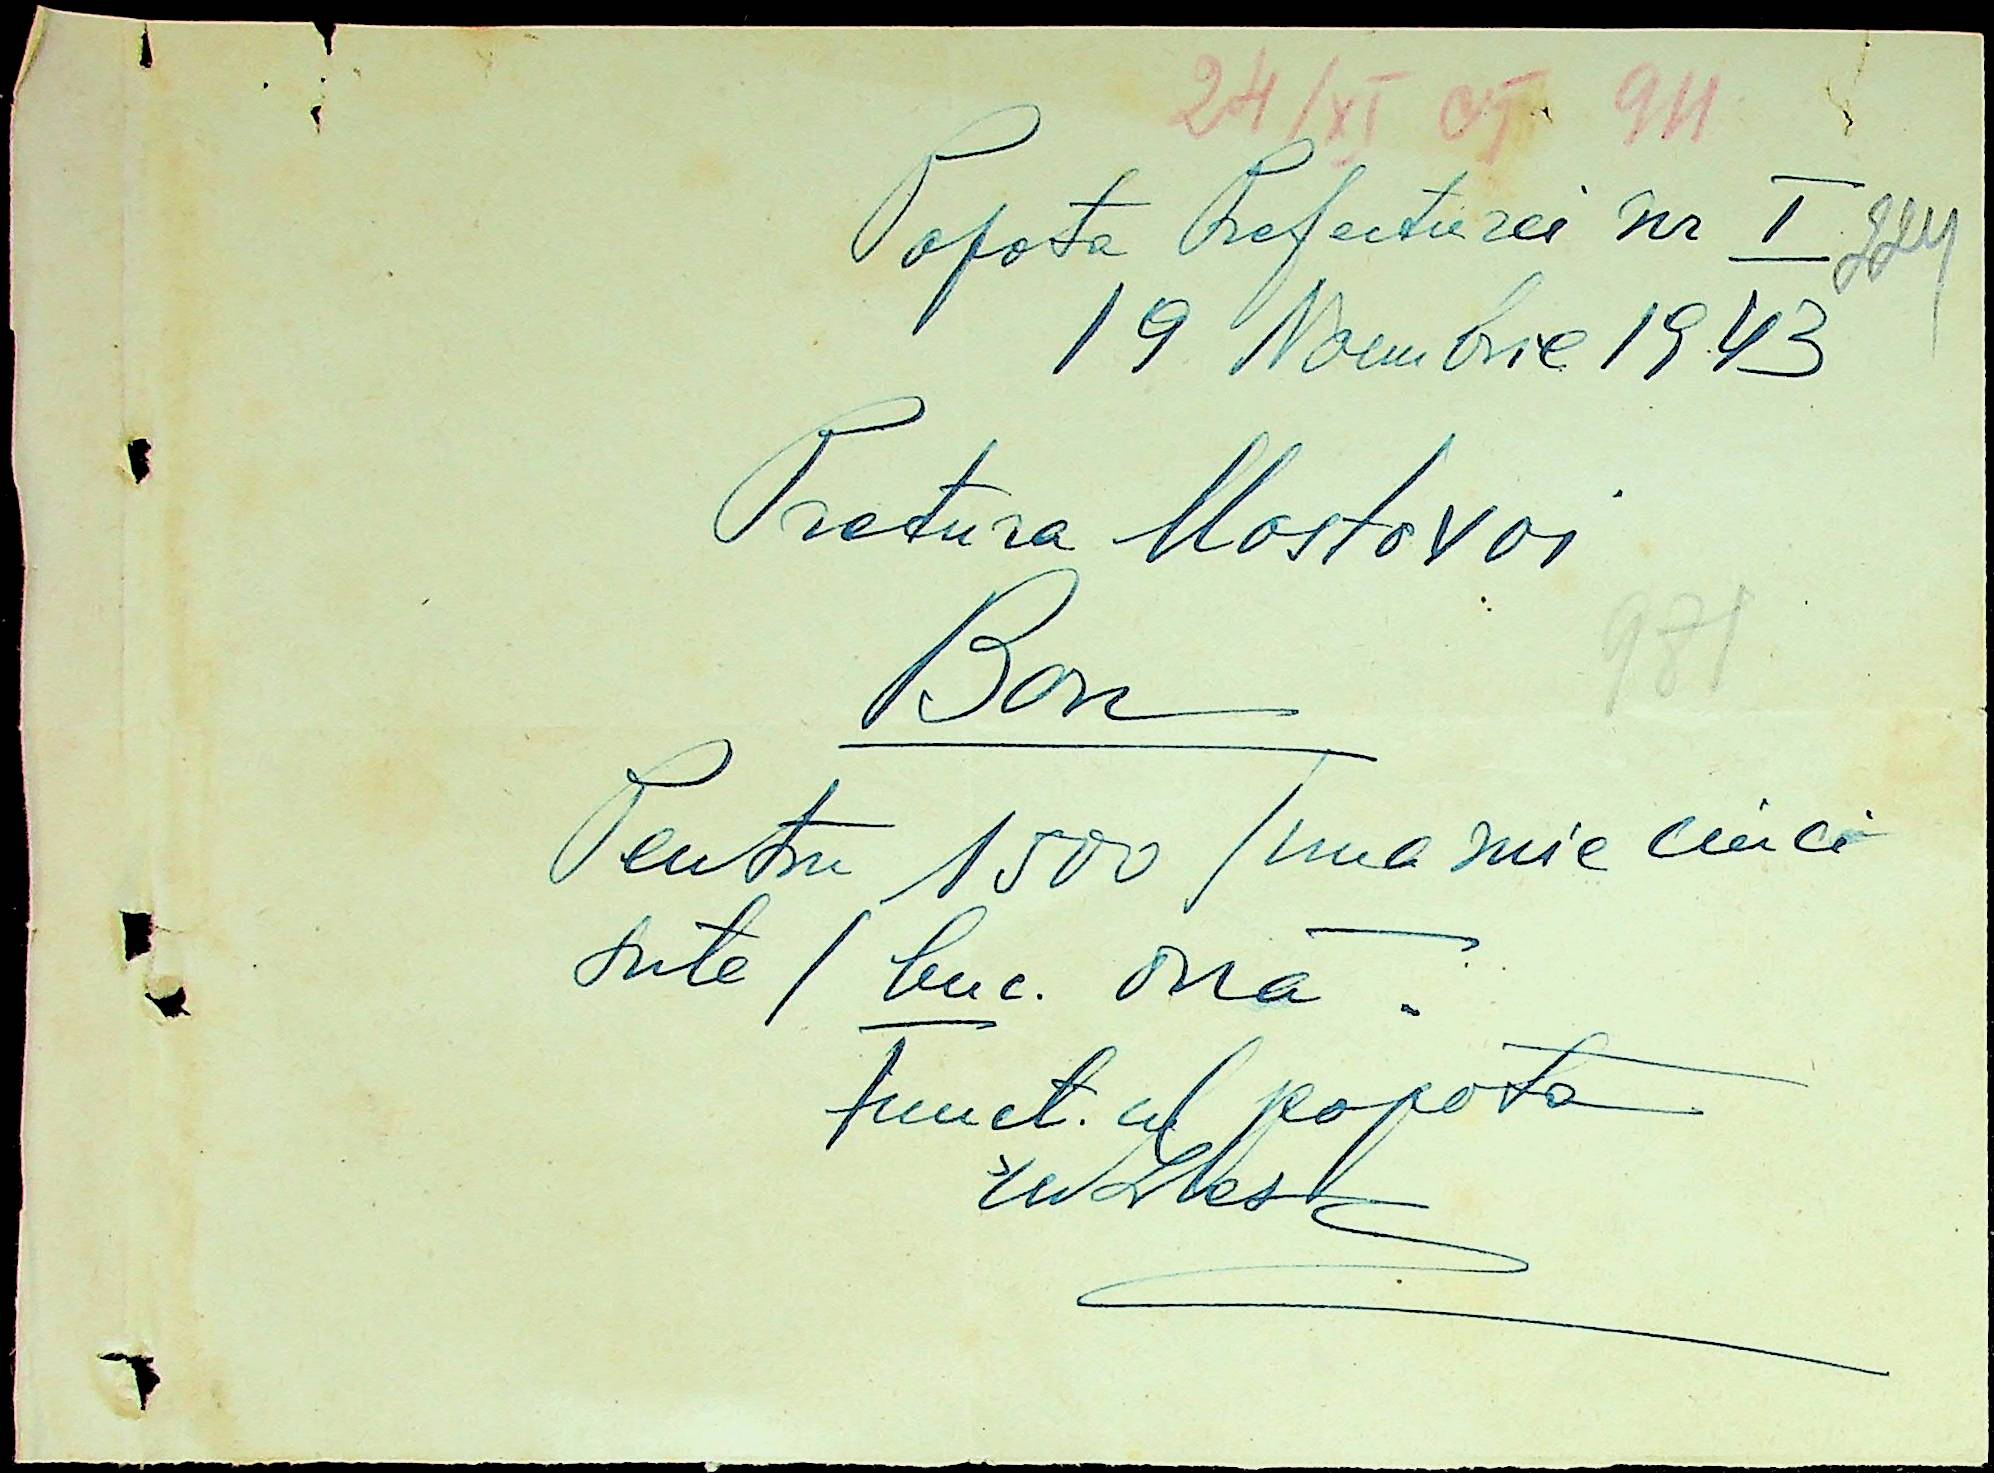 24/XI 911
Popota Prefecturei nr I
224
19 Noembrie 1943
Pretura Mostovoi
Bon
981
Pentru 1500 /una mie cinci
sute/ buc. ouă.
Funct. cu popota